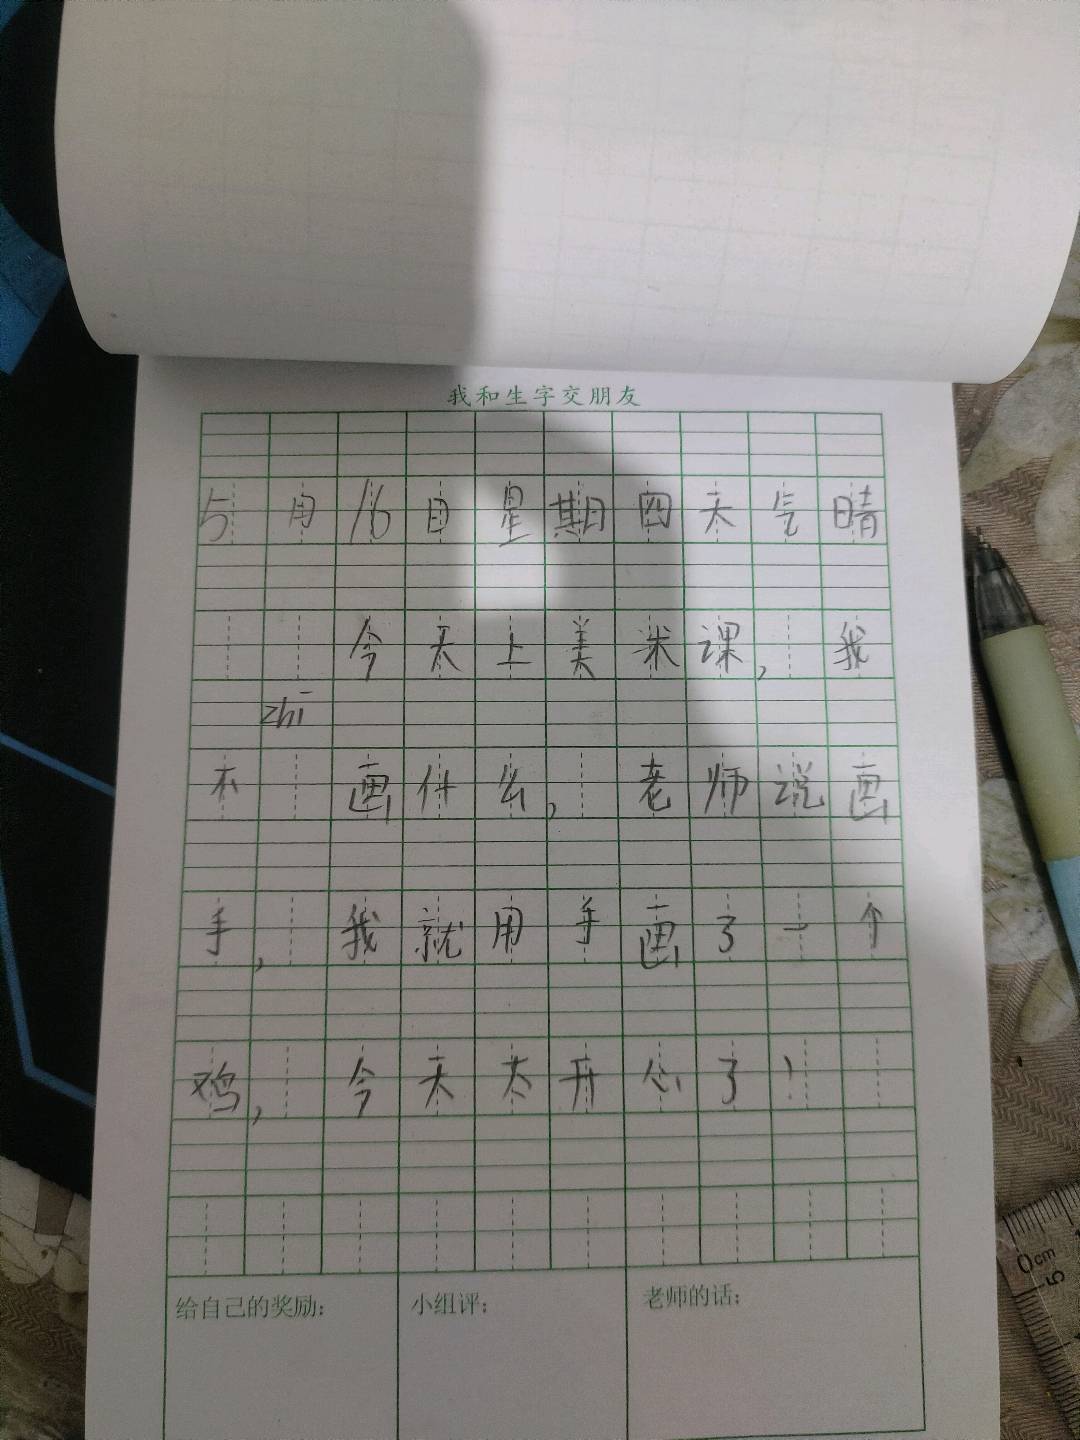 我和生字交朋友
5月16日星期四天气晴
今天上美术课,我
zhī
不 画什么,老师说画
手,我就用手画了一个
鸡,今天太开心了!
给自己的奖励:
小组评:
老师的话:
0cm
5